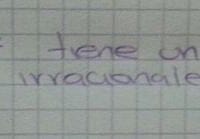 tiene un
irracionale